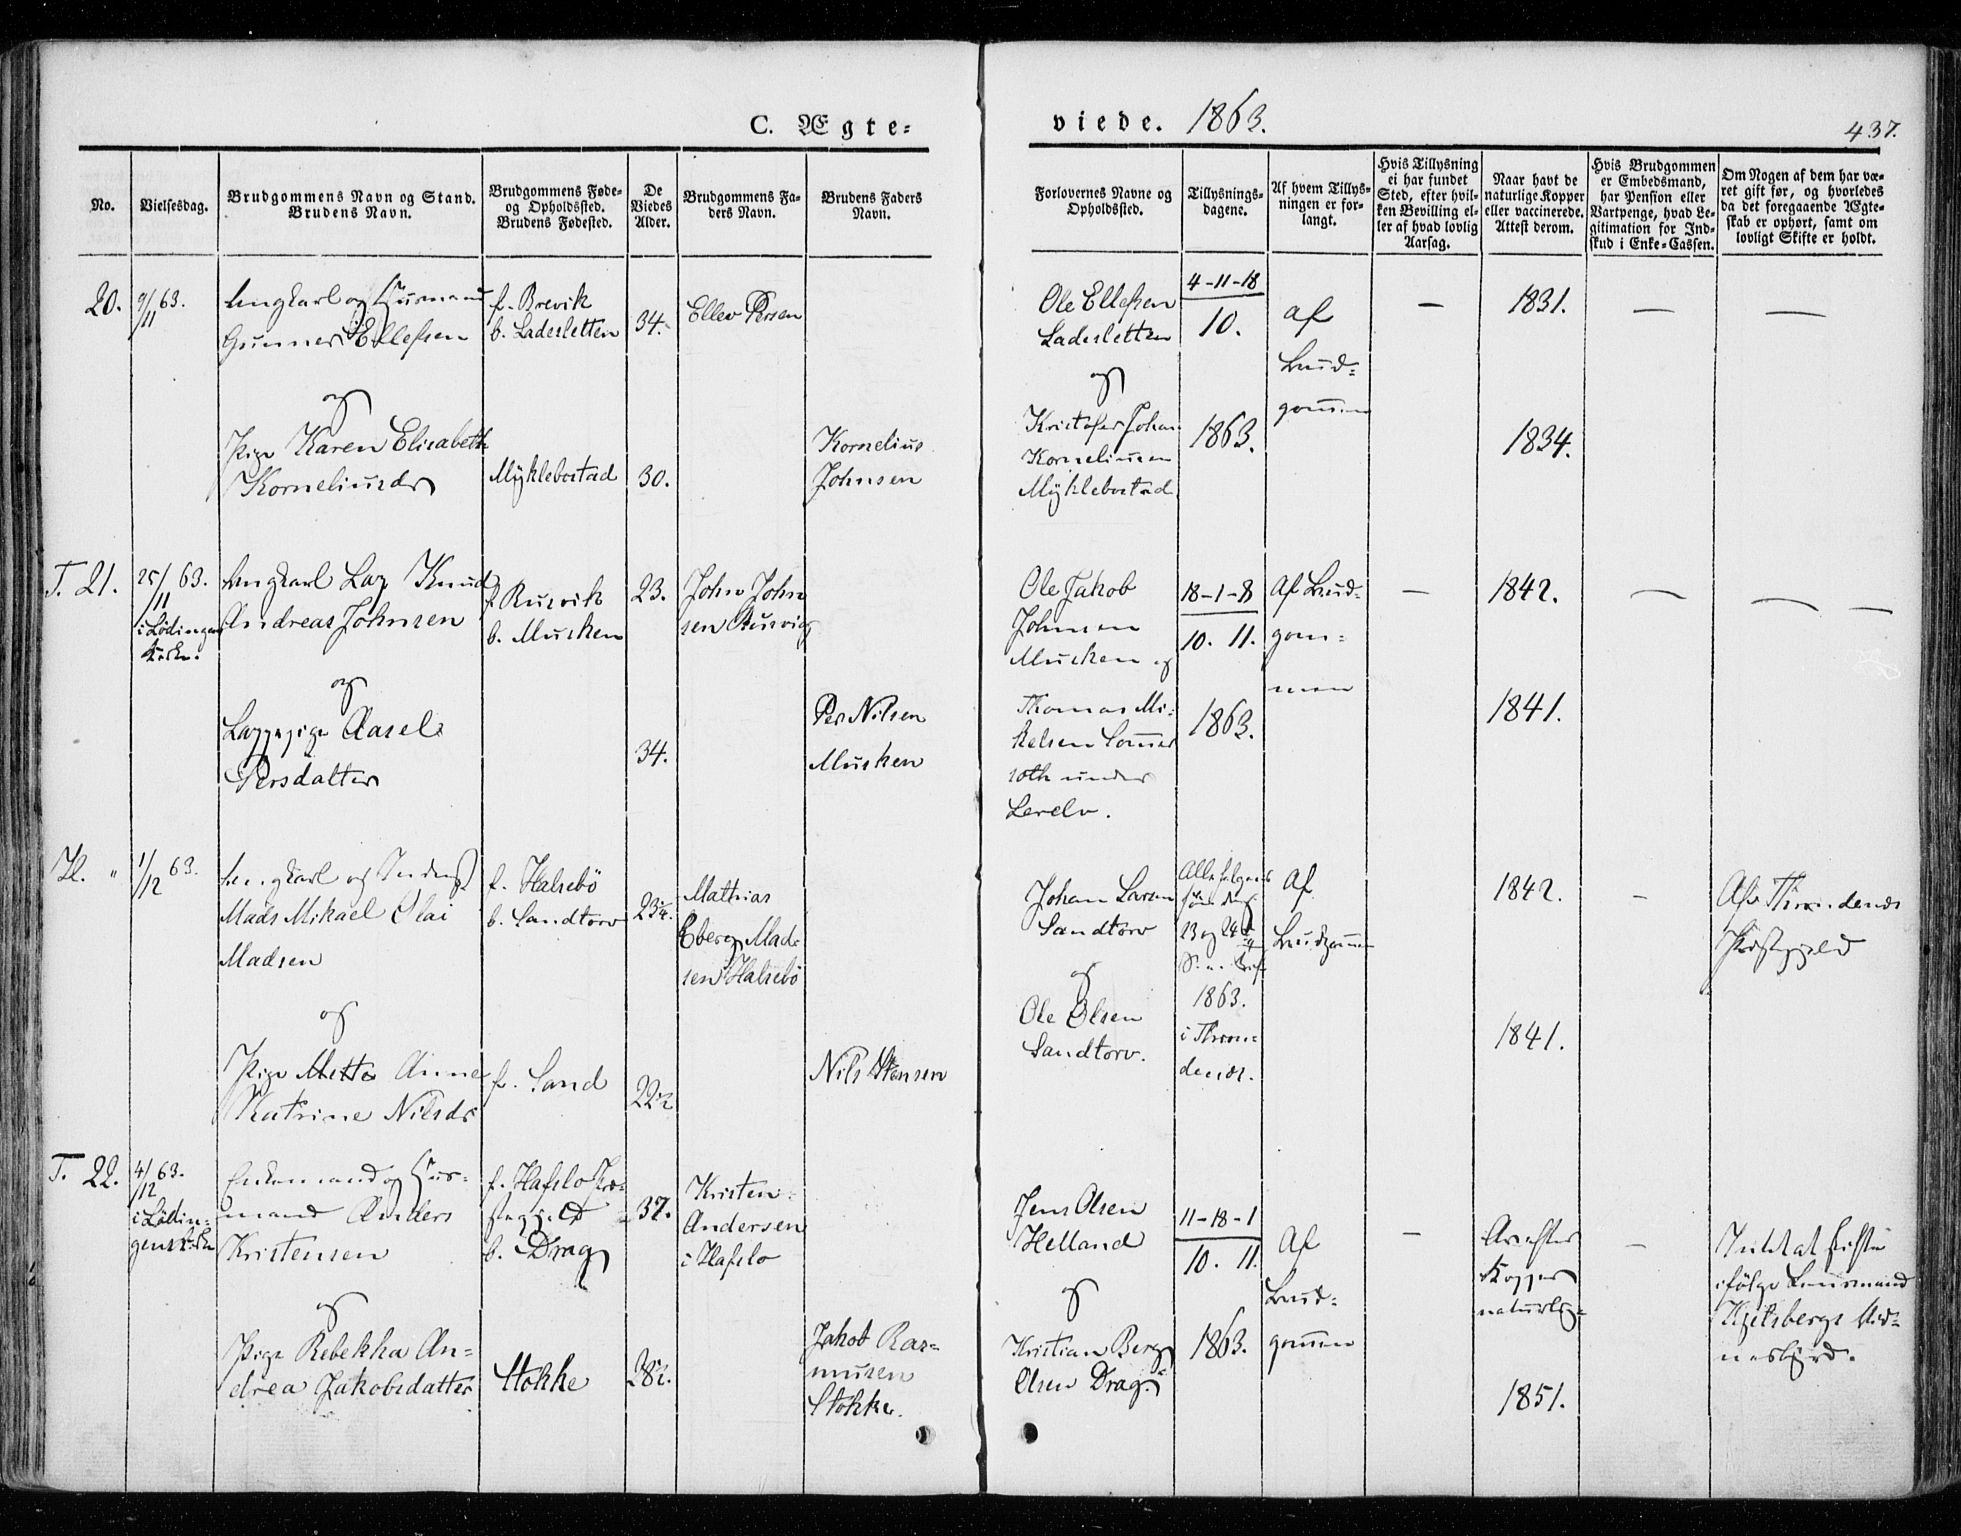 C. Ægte=
viede. 1863.
437.
No.
Vielsesdag.
Brudgommens Navn og Stand.
Brudens Navn.
Brudgommens Føde=
og Opholdssted.
Brudens Fødested.
De
Viedes
Alder.
Brudgommens Fa=
ders Navn.
Brudens Faders
Navn.
Forlovernes Navne og
Opholdssted.
Tillysnings=
dagene.
Af hvem Tillys=
ningen er for=
langt.
Hvis Tillysning
ei har fundet
Sted, efter hvil=
ken Bevilling el=
ler af hvad lovlig
Aarsag.
Naar havt de
naturlige Kopper
eller vaccinerede.
Attest derom.
Hvis Brudgommen
er Embedsmand,
har Pension eller
Vartpenge, hvad Le=
gitimation for Ind=
skud i Enke=Cassen.
Om Nogen af dem har væ=
ret gift før, og hvorledes
da det foregaaende Ægte=
skab er ophørt, samt om
lovligt Skifte er holdt.
20.
9/11 63.
Ungkarl og Husmand
Gunner Ellefsen
og
Pige Karen Elisabeth
Korneliusdr
f. Brevik
b. Ladesletten
Myklebostad
34.
30.
Ellev Persen
Kornelius
Johnsen
Ole Ellefsen
Ladesletten
og
Kristofer Johan
Korneliusen
Myklebostad
4-11-18
10.
1863.
af
Brud=
gommen
—
1831.
1834.
—
—
T. 21.
25/11 63.
i Lødingen
Kirke.
Ungkarl Lap Knud
Andreas Johnsen
og
Lappepige Aasel
Persdatter
f. Rusvik
b. Musken
23.
34.
John John
sen Rusvig
Per Nilsen
Musken
Ole Jakob
Johnsen
Musken og
Thomas Mi=
kelsen Sommer
soth under
Lerelv.
18-1-8
10. 11.
1863.
Af Brud=
gom=
men
—
1842.
1841.
—
— —
Kl. "
1/12 63.
Ungkarl og
Mads Mikael Olai
Madsen
og
Pige Mette Anne
Katrine Nilsdr
f. Halsebö
b. Sandtorv
f. Sand
23
22
Mathias
Eberg Mad
sen Halsebö
Nils Hansen
Johan Larsen
Sandtorv
og
Ole Olsen
Sandtorv.
23 og 24
1863.
i Thron=
denæs.
Af
Brudgommen
1842.
1841.
—
Af Throndenæs
Præstegjeld
T. 22.
4/12 63.
i Lödin=
gens Kirke
Enkemand og Hus=
mand Anders
Kristensen
og
Pige Rebekka An=
drea Jakobsdatter
f. Hafslo Præ=
stegjeld
b. Drag
Stokke
37.
28
Kristen
Andersen
i Hafslo
Jakob Ras=
musen
Stokke.
Jens Olsen
Helland
og
Kristian Berg
Olsen Drag.
11-18-1
10. 11.
1863.
Af
Brud=
gommen
—
Kopper
naturlig=
1851.
—
ifölge Lensmand
Kjelsbergs Vid=
nesbyrd.